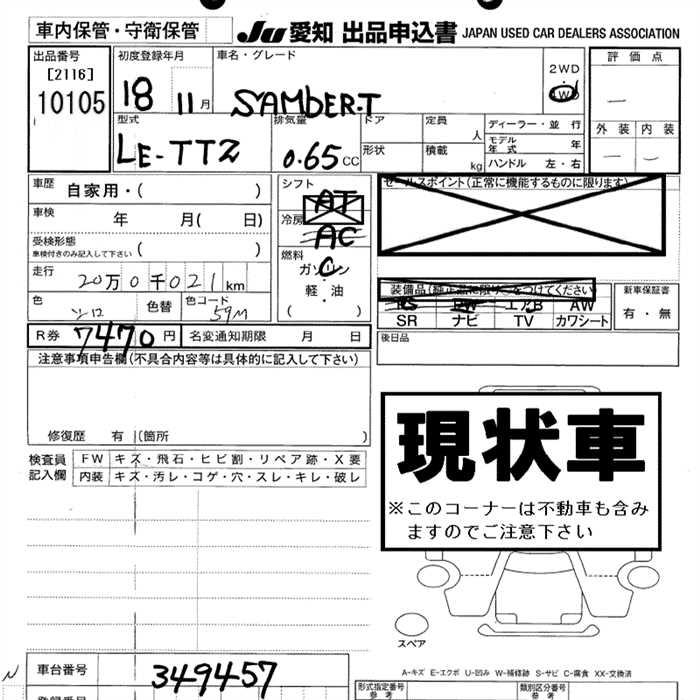 車内保管・守衛保管
JU 愛知 出品申込書 JAPAN USED CAR DEALERS ASSOCIATION
出品番号
[2116]
10105
初度登録年月
18 11月
車名・グレード
SAMBER-T
2WD
4WD
評価点
—
外装 内装
— —
型式
LE-TT2
排気量
0.65CC
ドア
形状
定員
人
積載
kg
ディーラー・並行
モデル年式 年
ハンドル 左・右
車歴 自家用・( )
車検 年 月( 日)
受検形態
車検付きのみ記入して下さい ( )
走行 20万0千021km
色 シロ 色替 色コード 59M
R券 7470円 名変通知期限 月 日
シフト
AT
冷房
AC
燃料
ガソリン
軽・油
( )
セールスポイント(正常に機能するものに限ります)
装備品(純正品に限り○をつけてください)
PS PW エアB AW
SR ナビ TV カワシート
新車保証書
有・無
後日品
注意事項申告欄(不具合内容等は具体的に記入して下さい)
修復歴 有 (箇所 )
現状車
※このコーナーは不動車も含み
ますのでご注意下さい
検査員記入欄
FW キズ・飛石・ヒビ割・リペア跡・X要
内装 キズ・汚レ・コゲ・穴・スレ・キレ・破レ
スペア
A-キズ E-エクボ U-凹み W-補修跡 S-サビ C-腐食 XX-交換済
車台番号 349457
登録番号
形式指定番号
参考
類別区分番号
参考